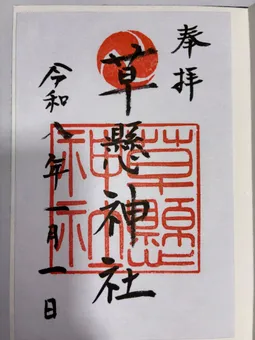 奉拝
草懸神社
令和八年一月一日
草懸
神社